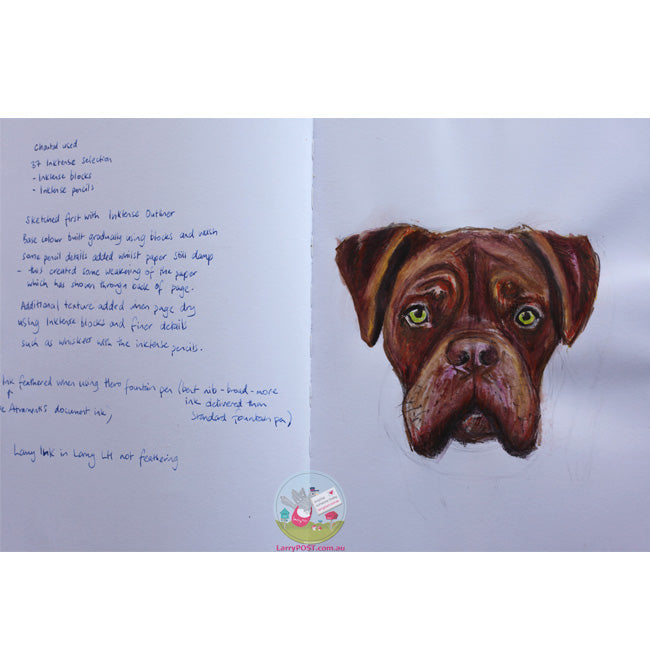 Chantal used
37 Inktense selection
- Inktense blocks
- Inktense pencils
Sketched first with Inktense Outliner
Base colour built gradually using blocks and wash
some pencil details added whilst paper still damp
- this created some weakening of the paper
which has shown through back of page.
Additional texture added when page dry
using Inktense blocks and finer details
such as whiskers with the inktense pencils.
Ink feathered when using Hero fountain pen (bent nib - broad - more
ink delivered than
standard fountain pen)
Atramentis document ink,
Lamy Ink in Lamy LH not feathering
LarryPOST.com.au